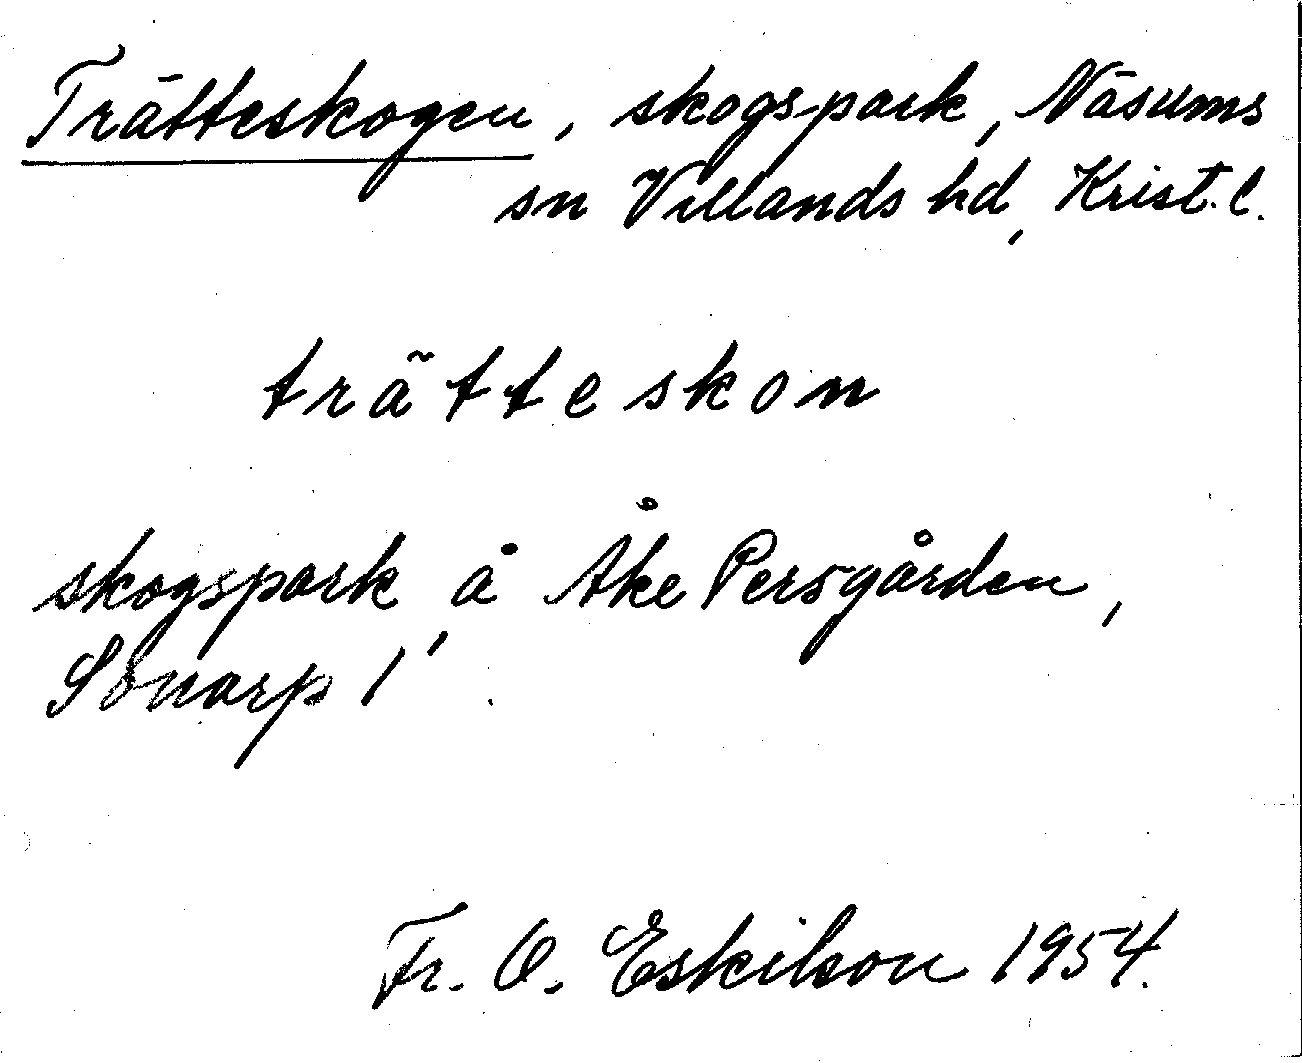 Trätteskogen, skogspark, Näsums
sn Villands hd, Krist. l.
trätteskon
skogspark, å Åke Persgården,
Sönarp 1.
Fr. O. Eskilson 1954.